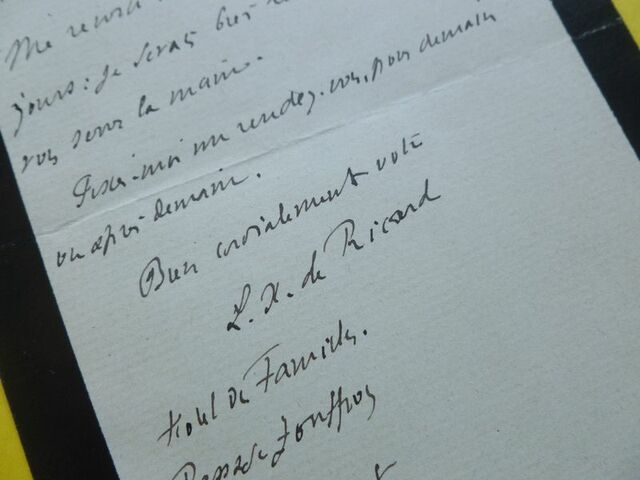 Me revoici
jours : je serais bien
vous serrer la main.
Fixez-moi un rendez-vous, pour demain
ou après demain.
Bien cordialement votre
L. X. de Ricard
Hôtel des Familles.
Passage Jouffroy